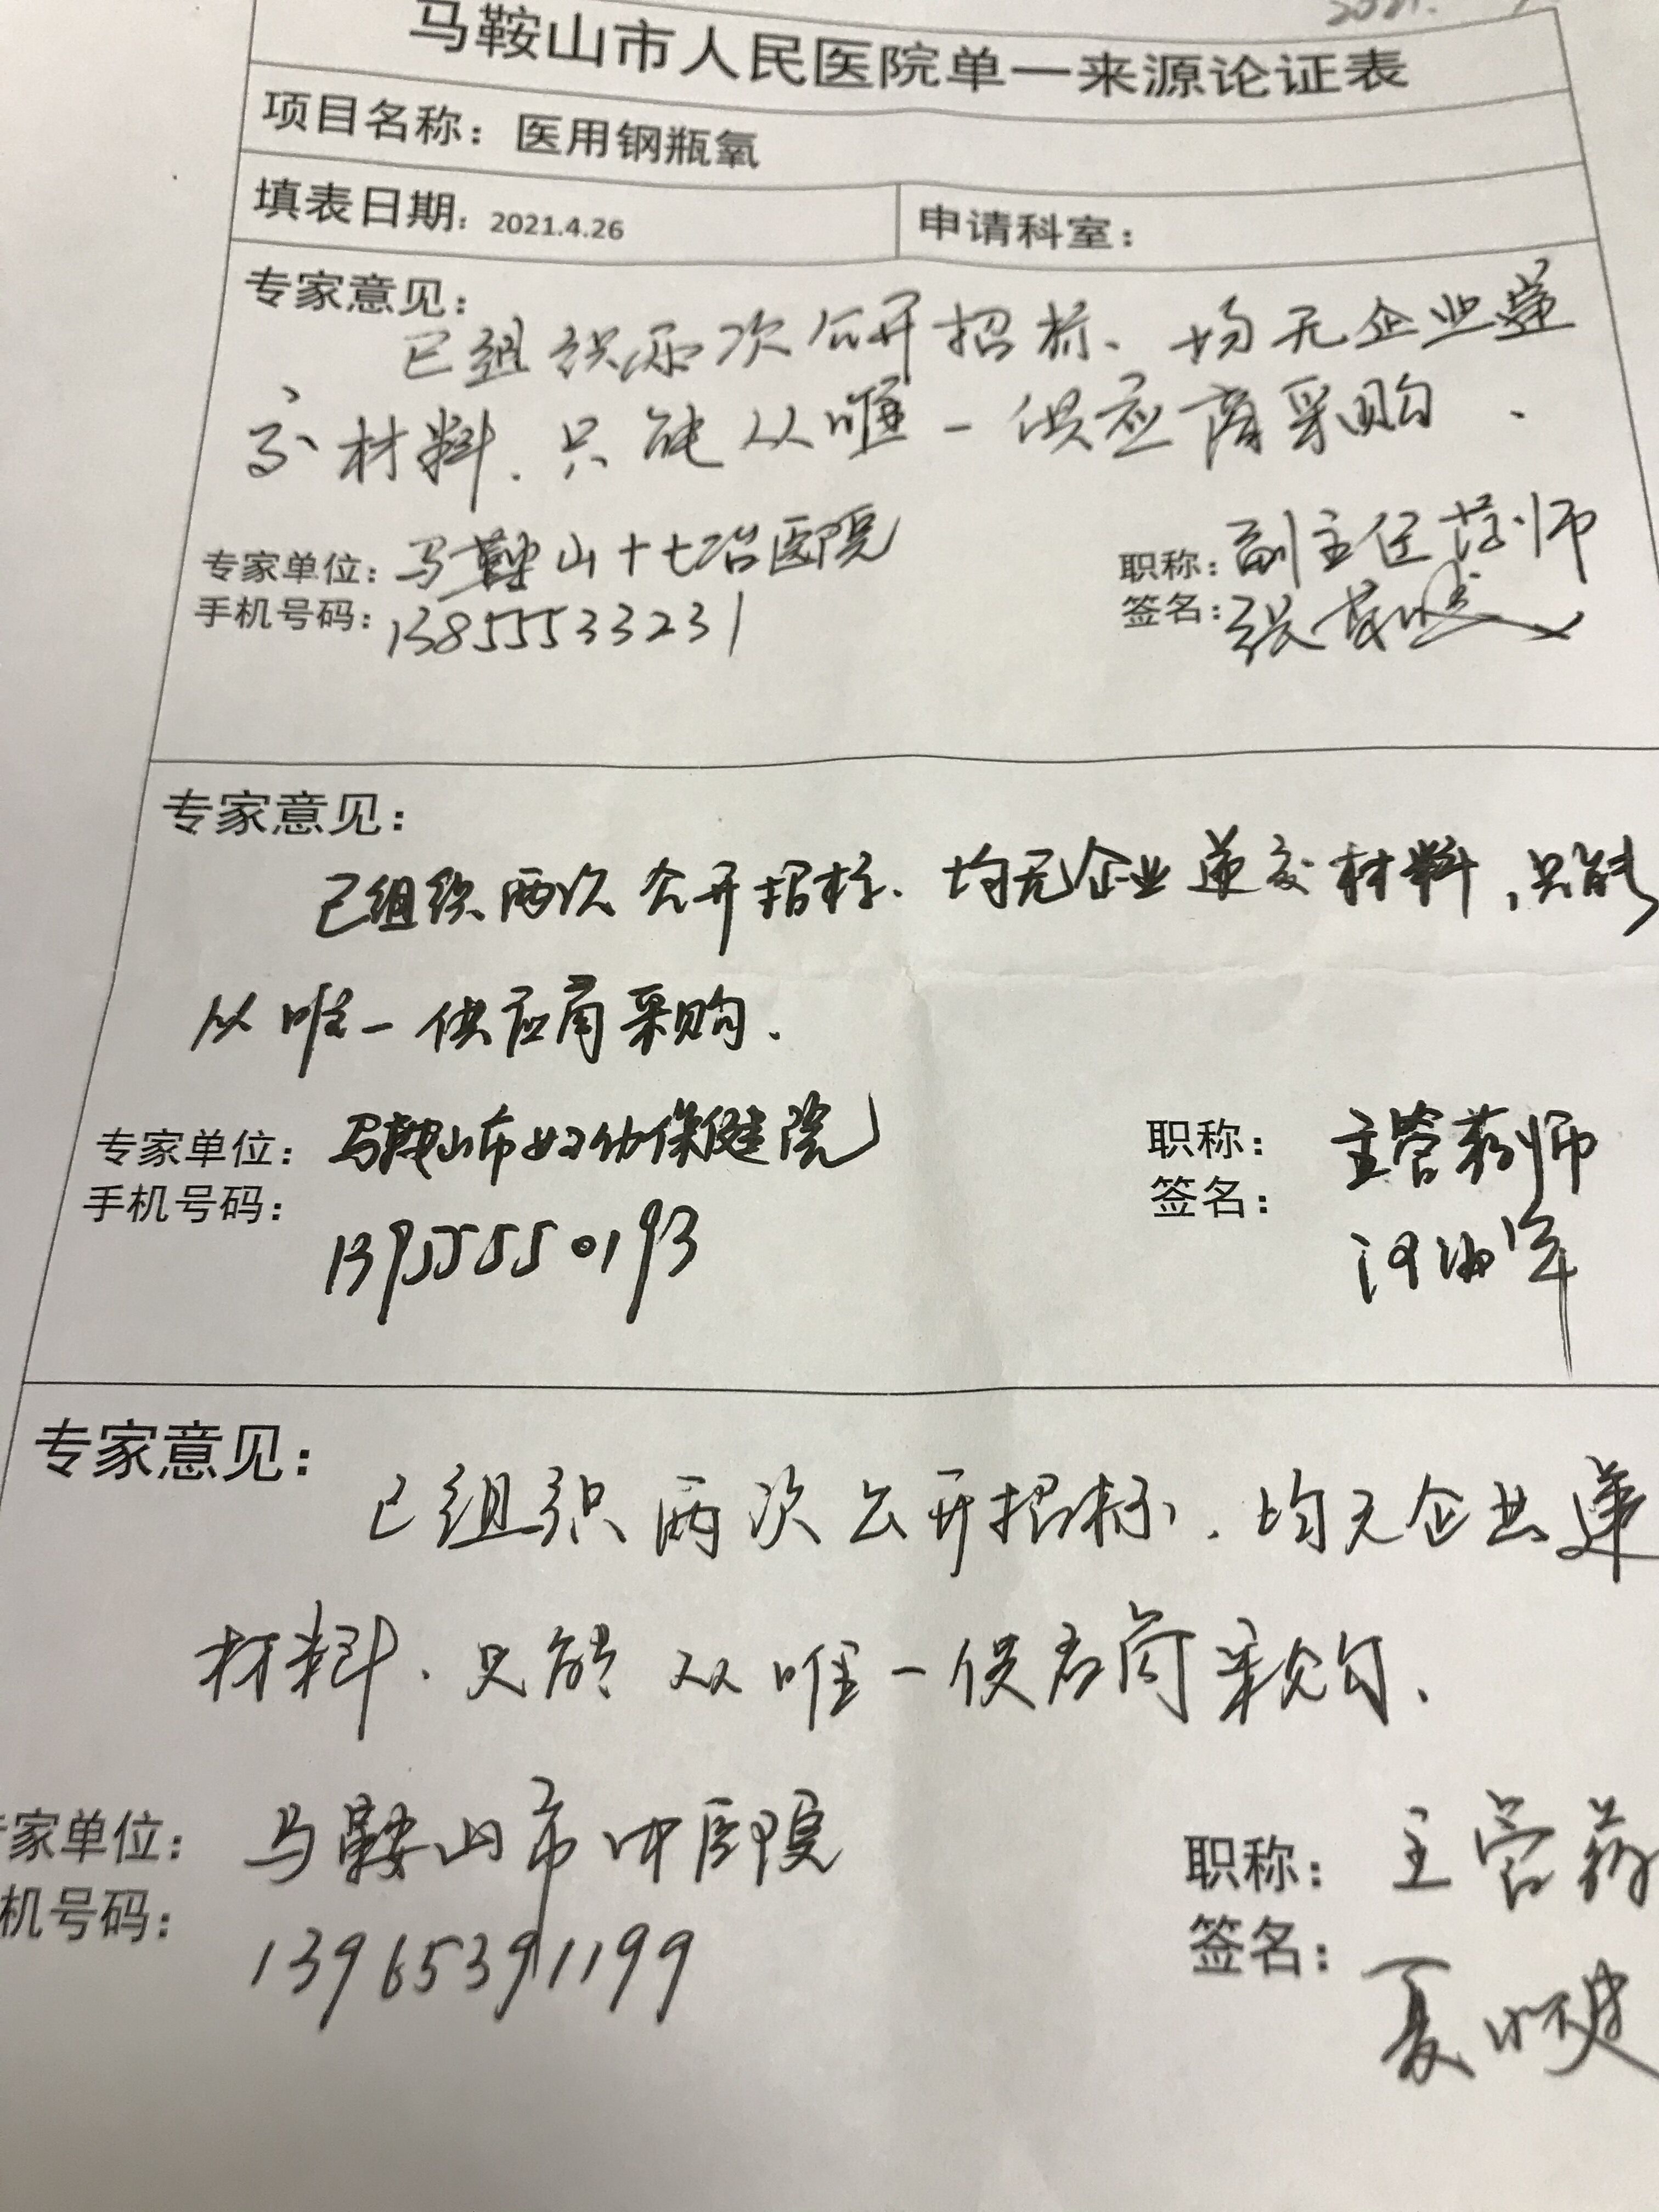 2021.
马鞍山市人民医院单一来源论证表
项目名称：医用钢瓶氧
填表日期：2021.4.26 申请科室：
专家意见：
已组织两次公开招标、均无企业递
交材料．只能从唯一供应商采购．
专家单位：马鞍山十七冶医院 职称：副主任药师
手机号码：13855533231 签名：张
专家意见：
已组织两次公开招标、均无企业递交材料，只能
从唯一供应商采购．
专家单位：马鞍山市妇幼保健院 职称：主管药师
手机号码：13955550193 签名：
专家意见：
已组织两次公开招标．均无企业递
材料．只能从唯一供应商采购．
家单位：马鞍山市中医院 职称：主管药
机号码：13965391199 签名：夏